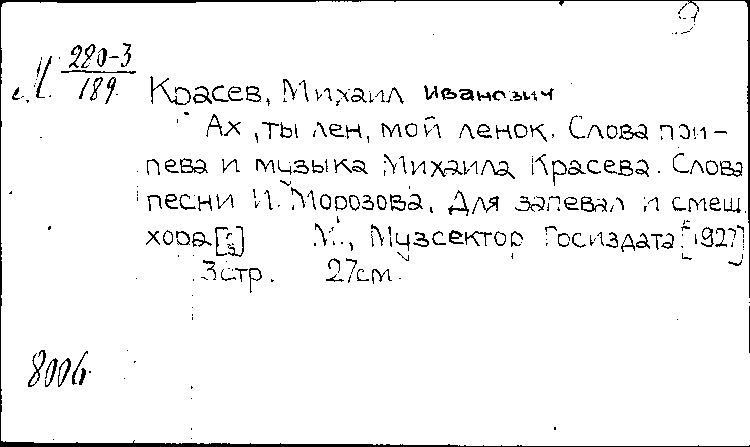 9
М 280-3
189
Красев, Михаил Иванович
Ах, ты лен, мой ленок. Слова при-
пева и музыка Михаила Красева. Слова
песни И. Морозова. Для запевал и смеш.
хора М., Музсектор Госиздата [1927]
3стр. 27см.
8006